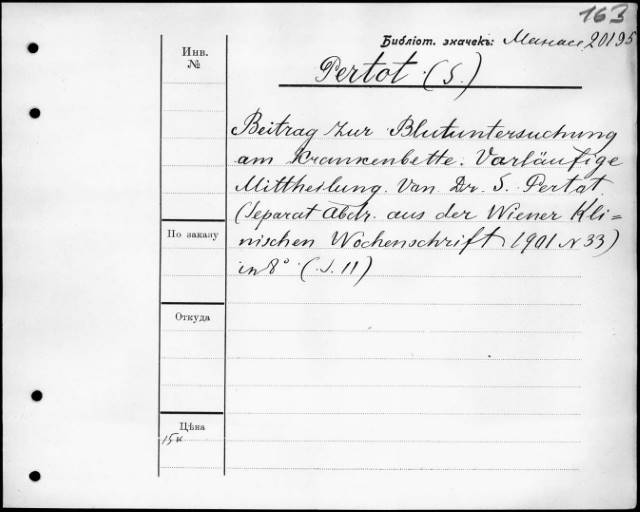 163
Библіот. значекъ: Манас. 20195
Инв.
№
Pertot (S.)
Beitrag zur Blutuntersuchung
am Krankenbette. Vorläufige
Mittheilung. Von Dr. S. Pertot.
(Separat Abdr. aus der Wiener Kli=
По заказу
nischen Wochenschrift 1901 N 33)
in 8° (S. 11)
Откуда
Цѣна
15к